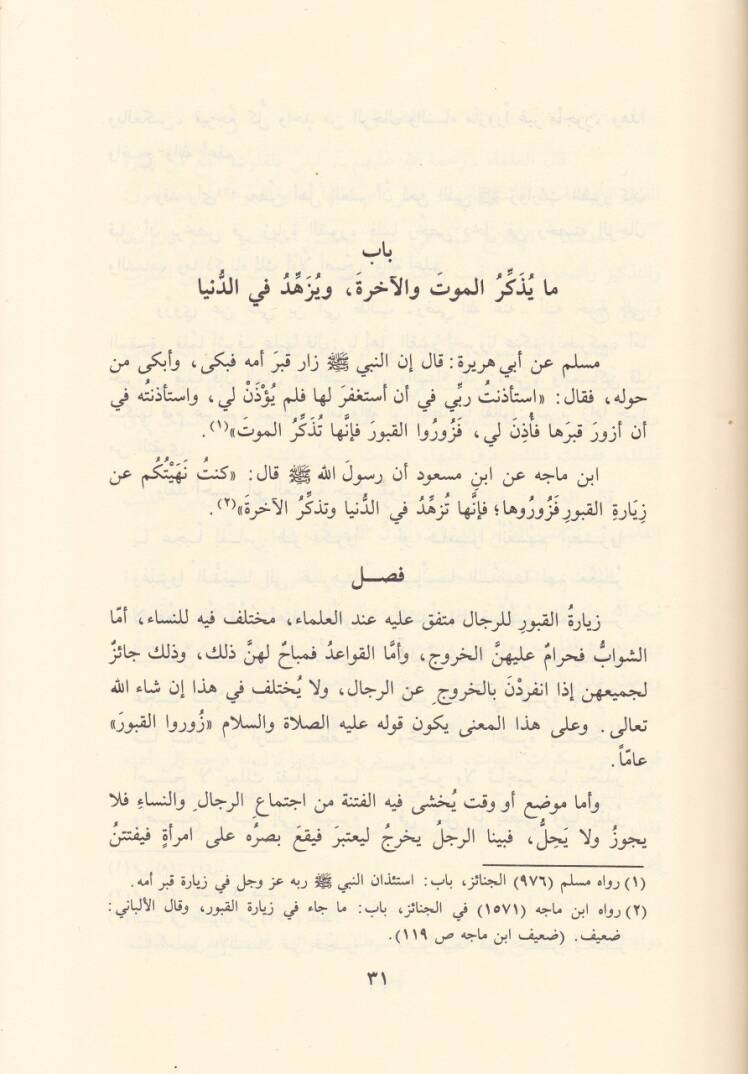 باب
ما يُذَكِّرُ الموتَ والآخرةَ، ويُزَهِّدُ في الدُّنيا
مسلم عن أبي هريرة: قال إن النبي ﷺ زار قبرَ أمه فبكى، وأبكى من
حوله، فقال: «استأذنتُ ربِّي في أن أستغفرَ لها فلم يُؤْذَنْ لي، واستأذنته في
أن أزورَ قبرَها فأُذِنَ لي، فَزُورُوا القبورَ فإنَّها تُذَكِّرُ الموتَ»(١).
ابن ماجه عن ابنِ مسعود أن رسولَ الله ﷺ قال: «كنتُ نَهَيْتُكُم عن
زِيَارةِ القبورِ فَزُورُوها؛ فإنَّها تُزهِّدُ في الدُّنيا وتذكِّرُ الآخرةَ»(٢).
فصـل
زيارةُ القبورِ للرجال متفق عليه عند العلماء، مختلف فيه للنساء، أمّا
الشوابُّ فحرامٌ عليهنَّ الخروج، وأمَّا القواعدُ فمباحٌ لهنَّ ذلك، وذلك جائزٌ
لجميعهن إذا انفردْنَ بالخروجِ عن الرجال، ولا يُختلف في هذا إن شاء الله
تعالى. وعلى هذا المعنى يكون قوله عليه الصلاة والسلام «زُوروا القبورَ»
عامّاً.
وأما موضع أو وقت يُخشى فيه الفتنة من اجتماعِ الرجالِ والنساءِ فلا
يجوزُ ولا يَحِلُّ، فبينا الرجلُ يخرجُ ليعتبرَ فيقعَ بصرُه على امرأةٍ فيفتتنُ
(١) رواه مسلم (٩٧٦) الجنائز، باب: استئذان النبي ﷺ ربه عز وجل في زيارة قبر أمه.
(٢) رواه ابن ماجه (١٥٧١) في الجنائز، باب: ما جاء في زيارة القبور، وقال الألباني:
ضعيف. (ضعيف ابن ماجه ص ١١٩).
٣١